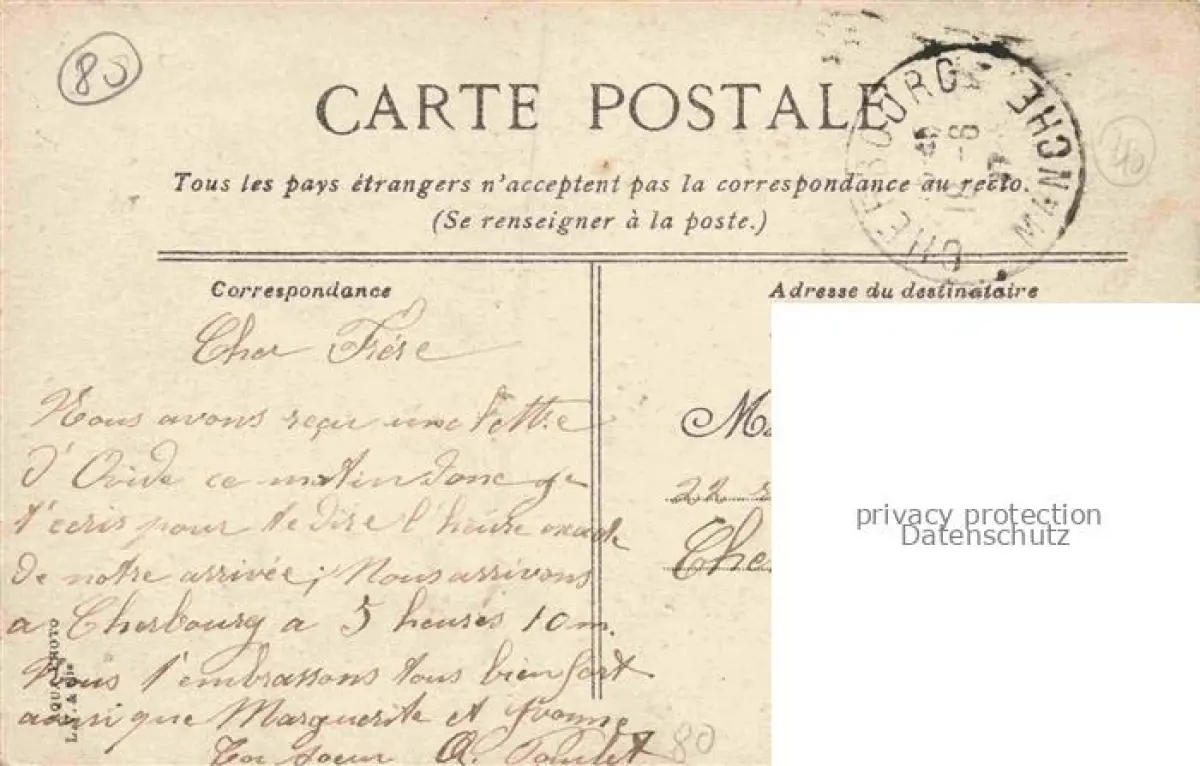 85
CARTE POSTALE
CHERBOURG MANCHE
40
Tous les pays étrangers n'acceptent pas la correspondance au recto.
(Se renseigner à la poste.)
Correspondance
Cher Frére
Nous avons reçu une lettre
d'Ovide ce matin donc je
t'ecris pour te dire l'heure exacte
de notre arrivée; Nous arrivons
a Cherbourg a 5 heures 10 m.
Nous t'embrassons tous bien fort
ainsi que Marguerite et Yvonne
Ta soeur A.
80
Adresse du destinataire
M
22
Che
privacy protection
Datenschutz
AQUA PHOTO